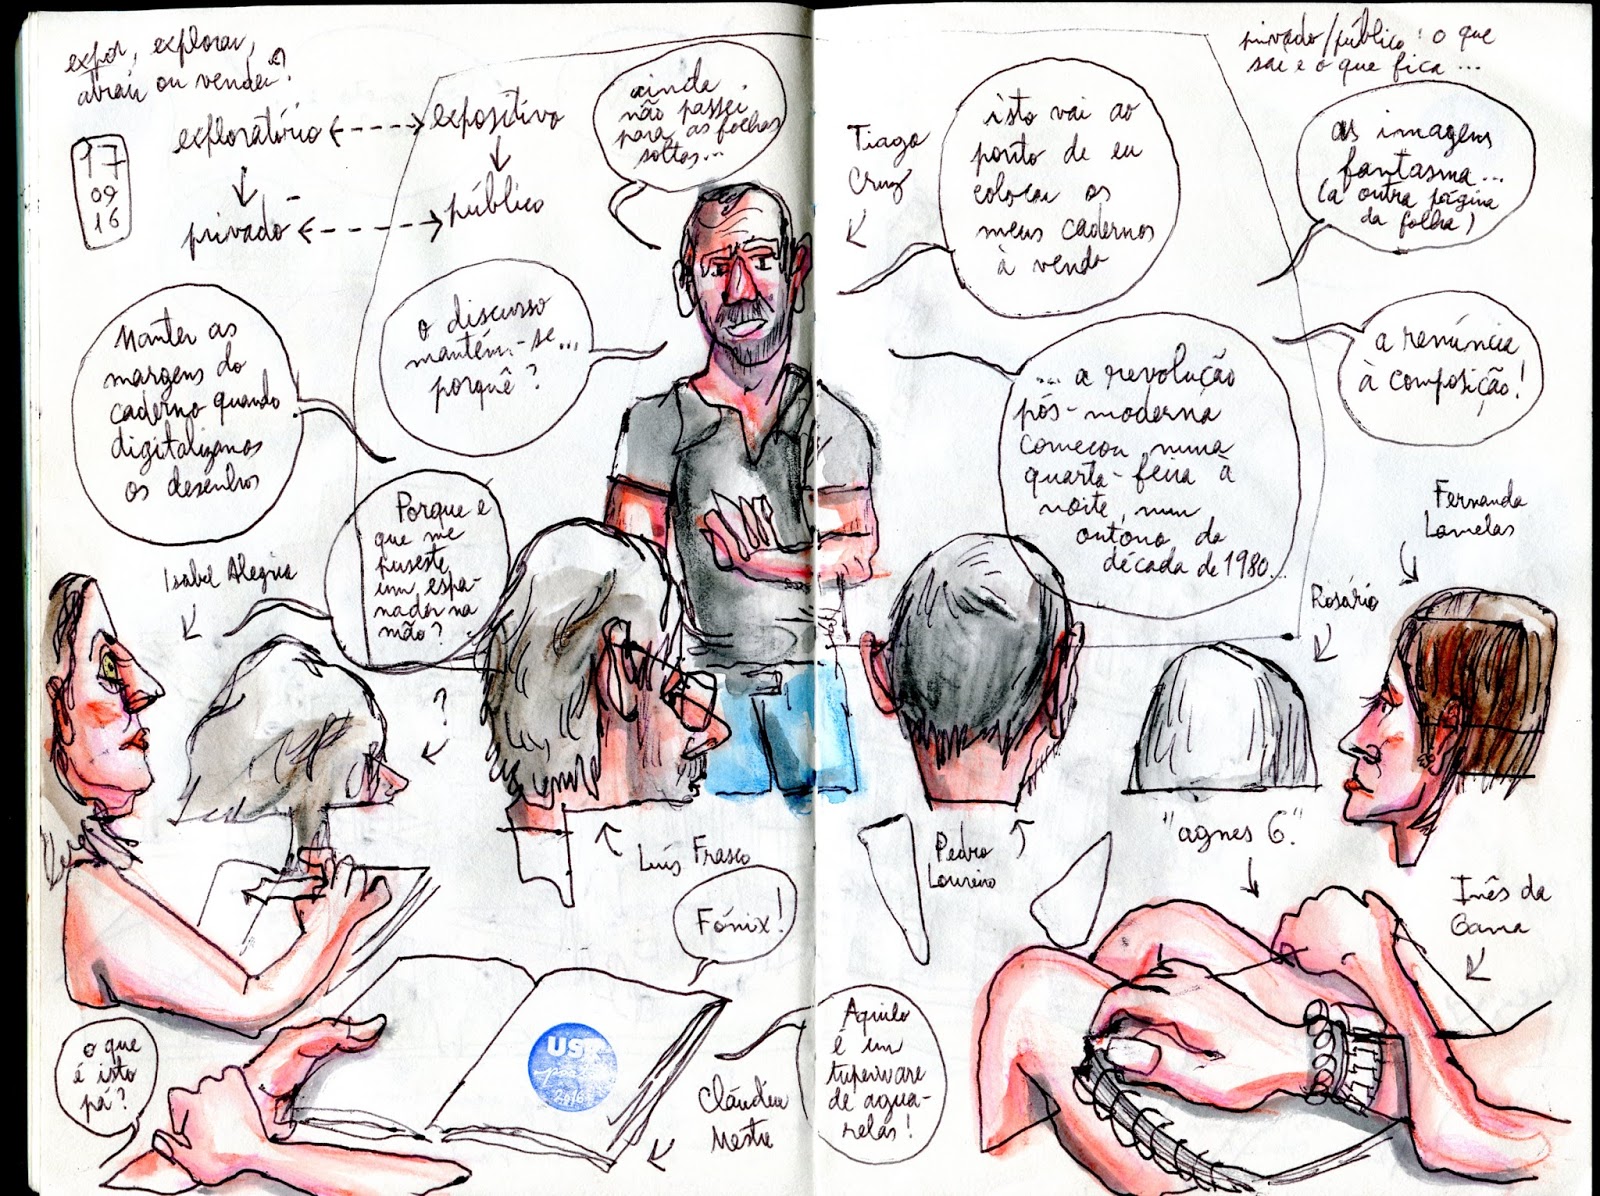 expor, explorar,
abrir ou vender?
17
09
16
exploratório
expositivo
privado
público
ainda
não passei
para as folhas
soltas...
Tiago
Cruz
isto vai ao
ponto de eu
colocar os
meus cadernos
à venda
privado/público: o que
sai e o que fica...
as imagens
fantasma...
(a outra página
da folha)
Manter as
margens do
caderno quando
digitalizamos
os desenhos
o discurso
mantém-se...
porquê?
... a revolução
pós-moderna
começou numa
quarta-feira à
noite, num
outono da
década de 1980...
a renúncia
à composição!
Porque é
que me
puseste
um espa-
nador na
mão?
Isabel Alegria
?
Fernanda
Lamelas
Rosário
Luís Frasco
Pedro
Loureiro
"agnes G."
Inês da
Gama
Fónix!
o que
é isto
pá?
US
2016
Cláudia
Mestre
Aquilo
é um
tuperware
de agua-
relas!